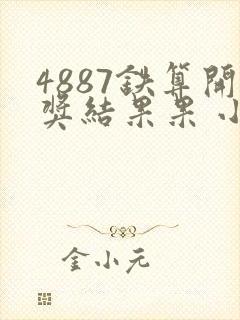 4887鉄算開
奖結果果小
金小元